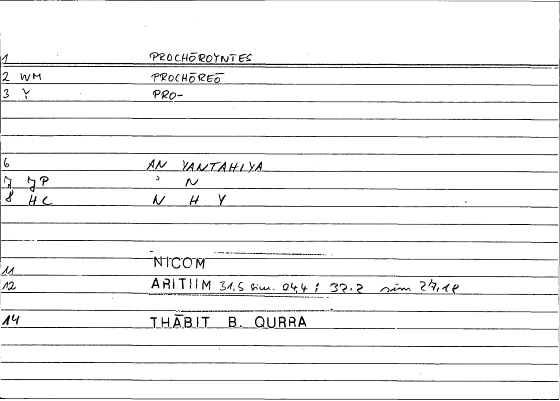 1 PROCHŌROYNTES
2 WM PROCHŌREŌ
3 Y PRO-
6 AN YANTAHIYA
7 JP ᵓ N
8 HC N H Y
11 NICOM
12 ARITIIM 31,5 sim. 04,4 ; 37.2 sim 27,18
14 THĀBIT B. QURRA